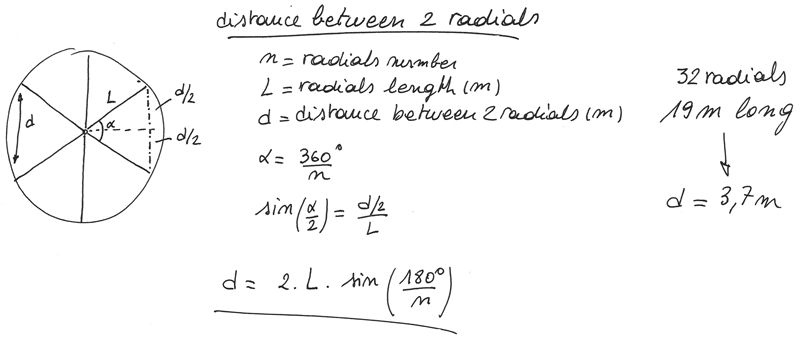 distance between 2 radials
n = radials number
L = radials length (m)
d = distance between 2 radials (m)
α = 360°/n
sin(α/2) = d/2/L
d = 2. L. sin(180°/n)
L
d/2
d
α
d/2
32 radials
19m long
d = 3,7m